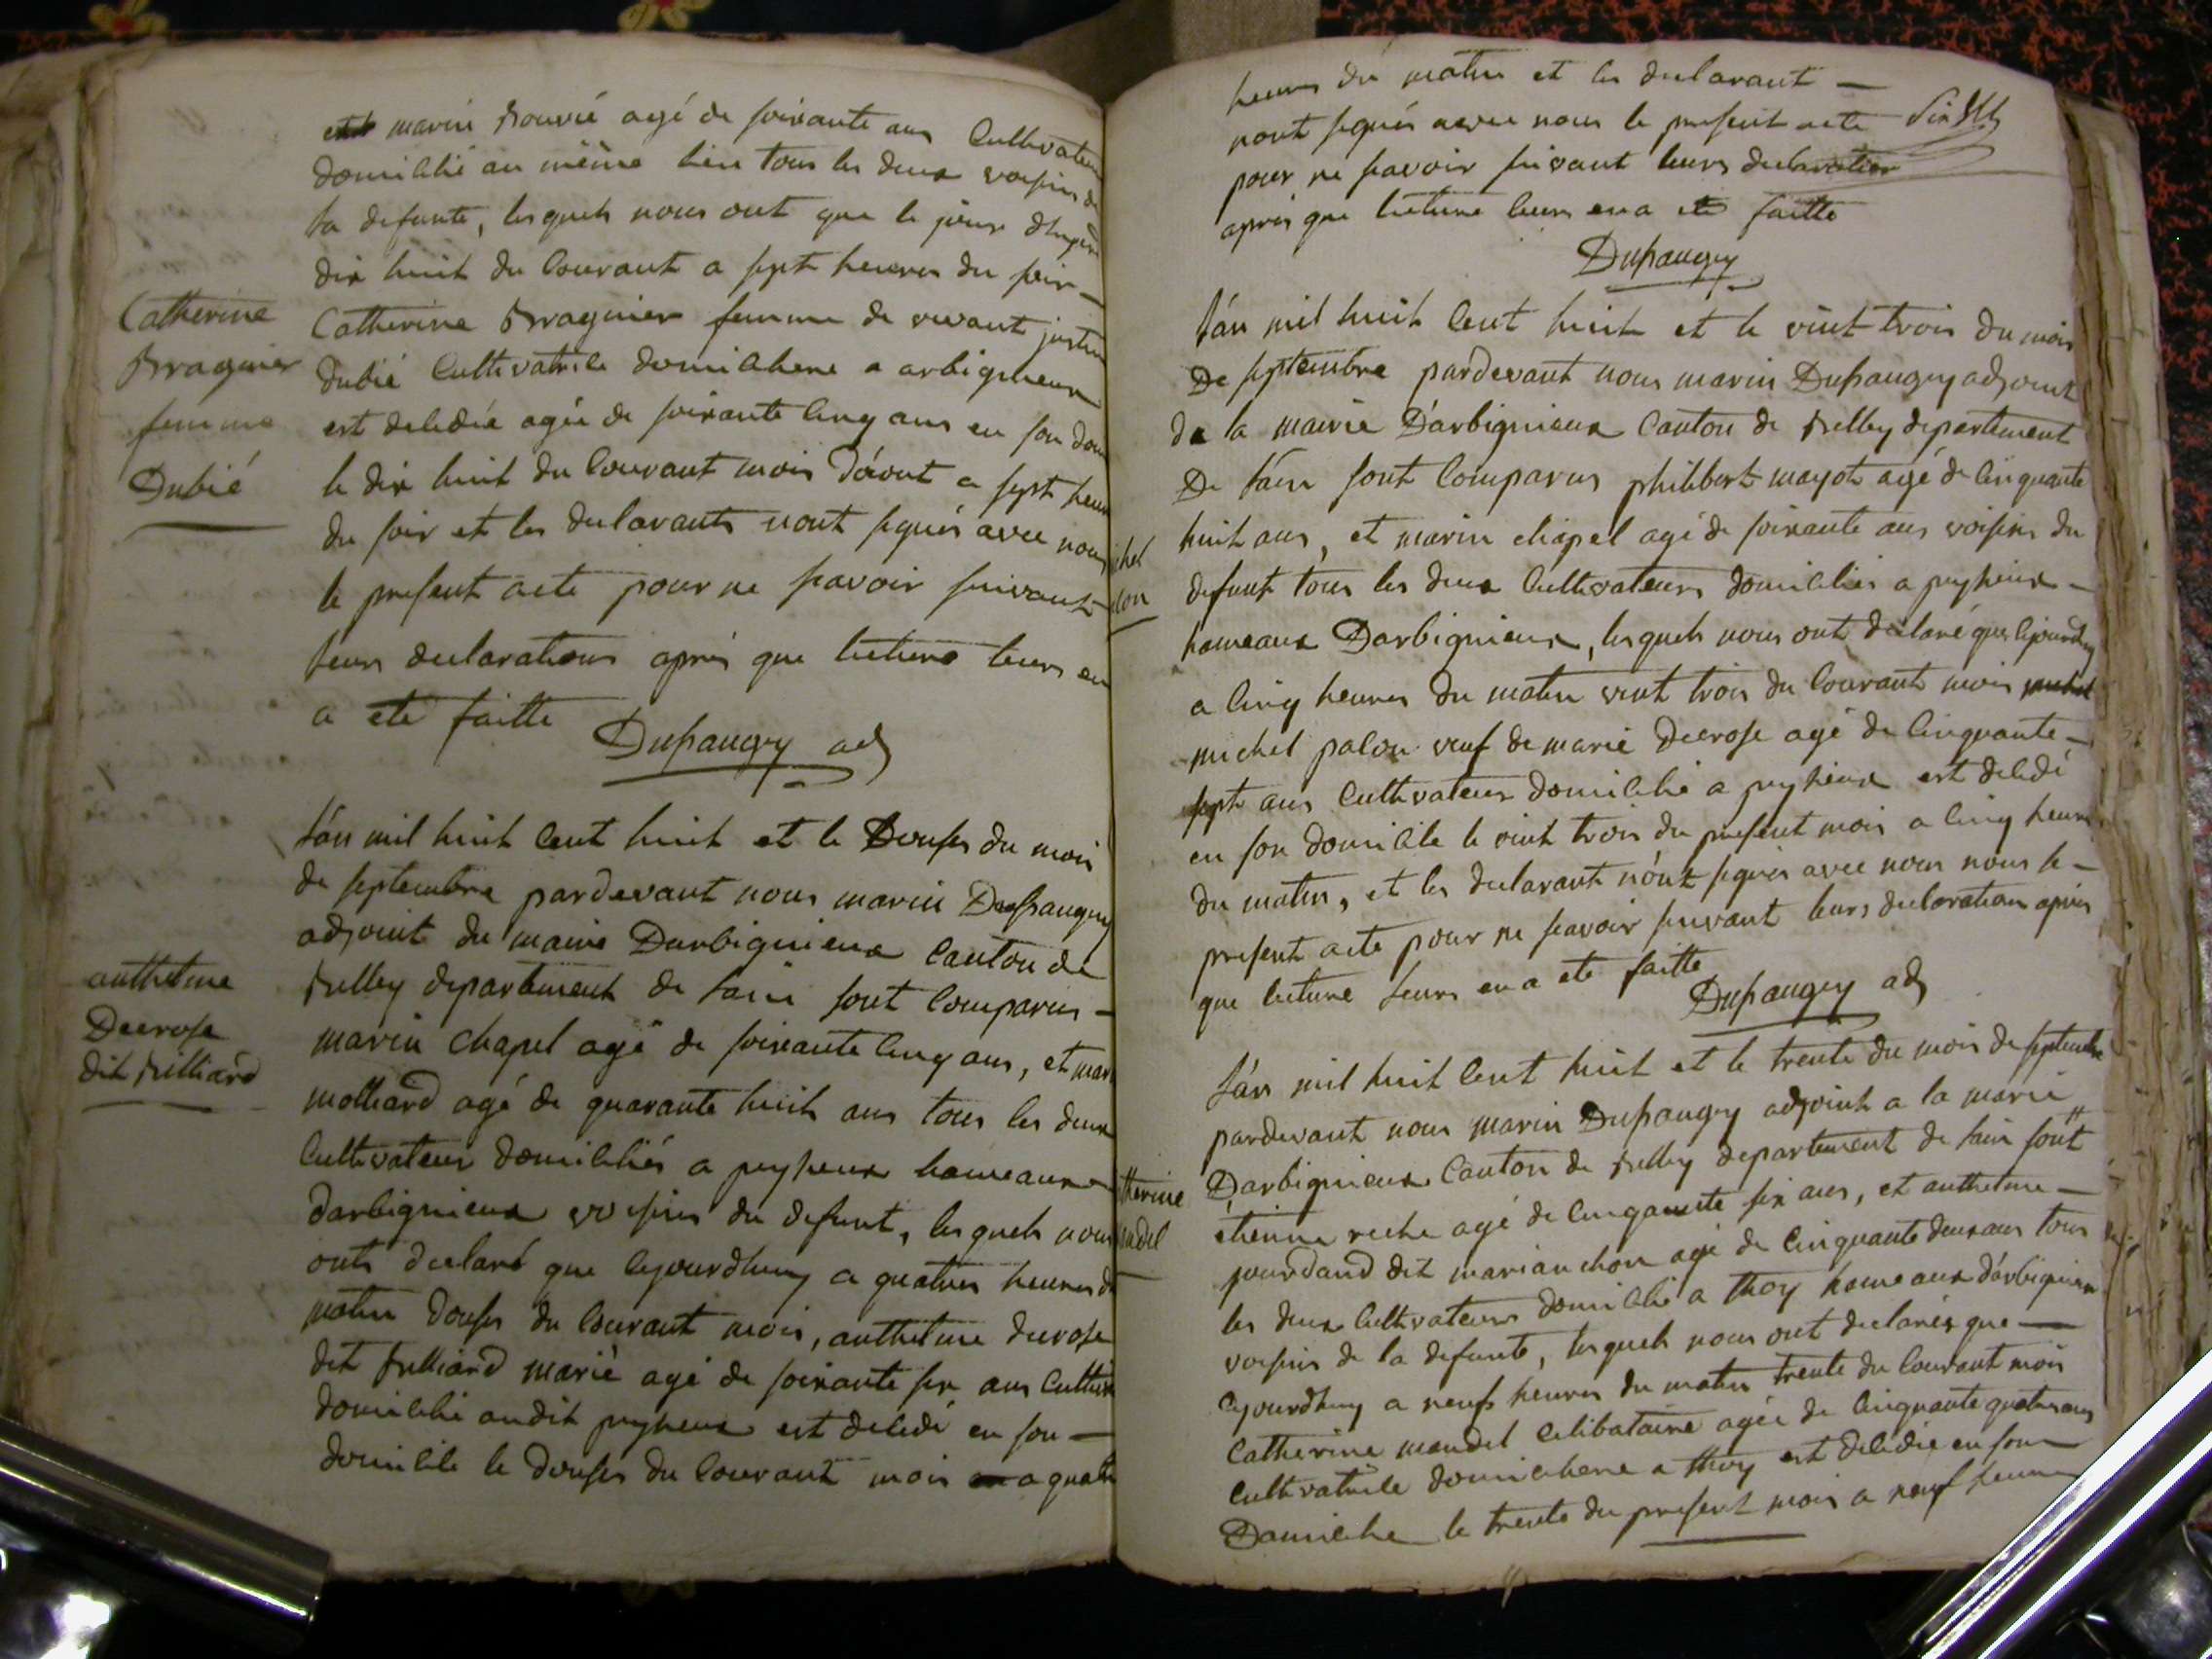 marin Bouvié agé de soixante ans Cultivateur
domicilié au même lieu tous les deux voisins de
la defunte, lesquels nous ont que le jour
dix huit du Courant a sept heures du soir -
Catherine
Bragnier
femme
Dubié
Catherine Bragnier femme de vivant justin
dubié Cultivatrice domiciliene a arbignieux
est dêlêdée agée de soixante Cinq ans en son dom
le dix huit du Courant mois d'aout a sept heur
du soir et les declarants nont signés avec nous
le present acte pour ne savoir suivant
leurs declarations après que lecture leurs en
a eté faitte
Dupaugey adj
l'an mil huit Cent huit et le Douse du mois
de septembre pardevant nous marin Dupaugey
adjoint du maire Darbignieux Canton de
Belley departement de l'ain sont Comparus -
anthelme
Decrose
dit Billiard
marin Chapel agé de soixante Cinq ans, et mari
molliard agé de quarante huit ans tous les deux
Cultivateur domiciliés a peyzieux hameaux
Darbignieux voisins du defunt, lesquels nous
onts declaré que Cejourdhuy a quatres heures du
matin douse du Courant mois, anthelme decrose
dit Billiard marié agé de soixante six ans Cultiv
domicilié audit peyzieux est dêlédé en son -
domicile le douse du Courant mois a quatre
heures du matin et les declarant -
nont signés avec nous le present acte
pour ne savoir suivant leurs declaration
après que lecture leurs en a eté faitte
Dupaugey
l'an mil huit Cent huit et le vint trois du mois
De septembre pardevant nous marin Dupaugey adjoint
de la mairie D'arbignieux Canton de Belley departement
De l'ain sont Comparus philibert mayot agé de Cinquante
huit ans, et marin chapel agé de soixante ans voisins du
chel
lon
defunt tous les deux Cultivateurs domiciliés a peyzieux -
hameaux Darbignieux, lesquels nous ont déclaré que Cejourdhuy
a Cinq heures du matin vint trois du Courant mois
michel palon veuf de marie Decrose agé de Cinquante -
sept ans Cultivateur domicilié a peyzieux est dêlédé
en son domicile le vint trois du present mois a Cinq heures
du matin, et les declarant n'ont signés avec nous nous le -
present acte pour ne savoir suivant leurs declaration après
que lecture leurs en a eté faitte
Dupaugey adj
l'an mil huit Cent huit et le trente du mois de septembre
pardevant nous marin Dupaugey adjoint a la marie
Darbignieux Canton de Belley departement de l'ain sont
therine
ndel
etienne reche agé de Cinquante six ans, et anthelme -
jourdand dit marianchon agé de Cinquante deux ans tous
les deux Cultivateurs domicilié a thoy hameaux d'arbignieux
voisins de la defunte, lesquels nous ont declarés que -
Cejourdhuy a neufs heures du matin trente du Courant mois
Catherine mandel Celibataire agée de Cinquante quatre ans
Cultivatrice domiciliene a thoy est dêlédée en son
Domicile le trente du present mois a neuf heures